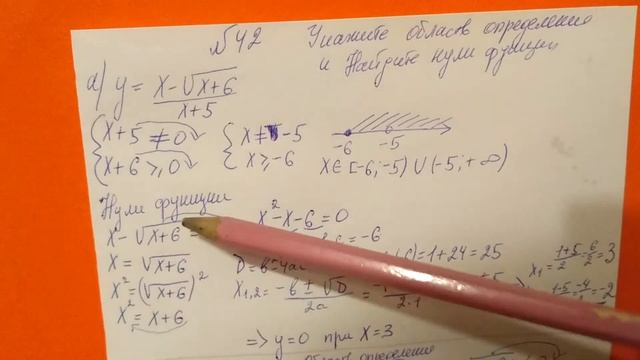 №42 Укажите область определения
и Найдите нули функции
а) y = x-√x+6 / x+5
{ x+5 ≠ 0 { x ≠ -5
{ x+6 ≥ 0 { x ≥ -6
-6 -5
x∈[-6;-5) ∪ (-5;+∞)
Нули функции
x - √x+6 =
x = √x+6
x² = (√x+6)²
x² = x+6
x² - x - 6 = 0
= -6
D = b²-4ac
= 1+24 = 25
x1,2 = -b ± √D / 2a =
2·1
x1 = 1+5/2 = 6/2 = 3
-2
=> y=0 при x=3
Область определения